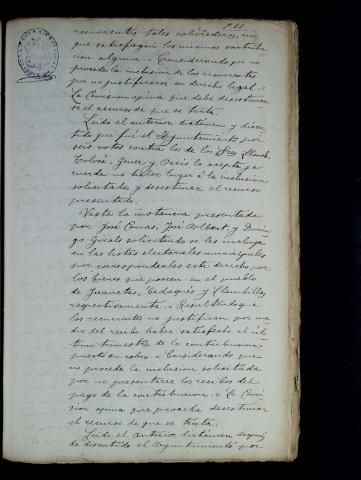 recurrentes tales coherederos, ni
que satisfagan los mismos contribu-
ción alguna = Considerando que no
procede la inclusion de los recurrentes
por no justificarse su derecho legal =
La Comision opina que debe desestimar-
se el recurso de que se trata.
Leido el anterior dictámen y discu-
tido que fué el Ayuntamiento por
seis votos contra los de los Sres
y acepta y a-
cuerda no haber lugar á la inclusion
solicitada y desestimar el recurso
presentado.
Vista la instancia presentada
por José Comas, José Albert, y Domin-
go Girals solicitando se les incluya
en las listas electorales municipales
por corresponderles este derecho por
los bienes que poseen en el pueblo
de Juanetas, Cadaqués y Llambillas
respectivamente = Resultando que
los recurrentes no justifican por me-
dio del recibo haber satisfecho el úl-
timo trimestre de la contribucion
puesto en cobro = Considerando que
no procede la inclusion solicitada
por no presentarse los recibos del
pago de la contribucion = La Comi-
sion opina que procede desestimar
el recurso de que se trata.
Leido el anterior dictámen despues
de discutido el Ayuntamiento por